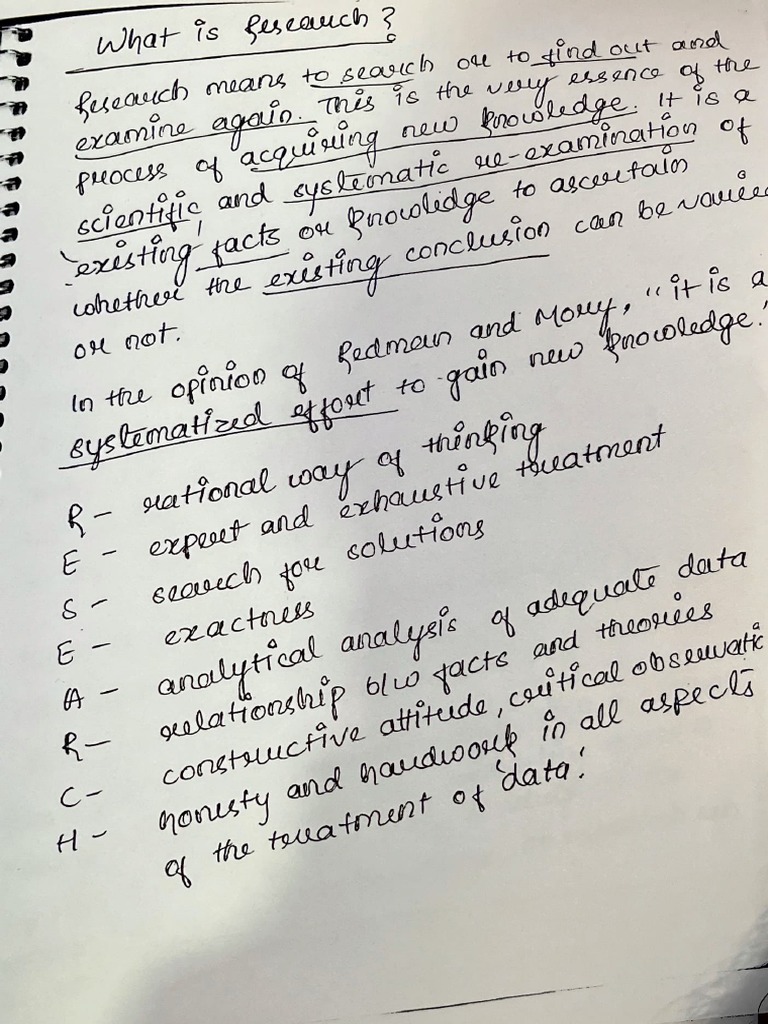 What is Research?
Research means to search or to find out and
examine again. This is the very essence of the
process of acquiring new knowledge. It is a
scientific and systematic re-examination of
'existing' facts or knowledge to ascertain
whether the existing conclusion can be varied
or not.
In the opinion of Redman and Mory, "it is a
systematized effort to gain new knowledge."
R - rational way of thinking
E - expert and exhaustive treatment
S - search for solutions
E - exactness
A - analytical analysis of adequate data
R - relationship b/w facts and theories
C - constructive attitude, critical observatic
H - honesty and hardwork in all aspects
of the treatment of 'data'.